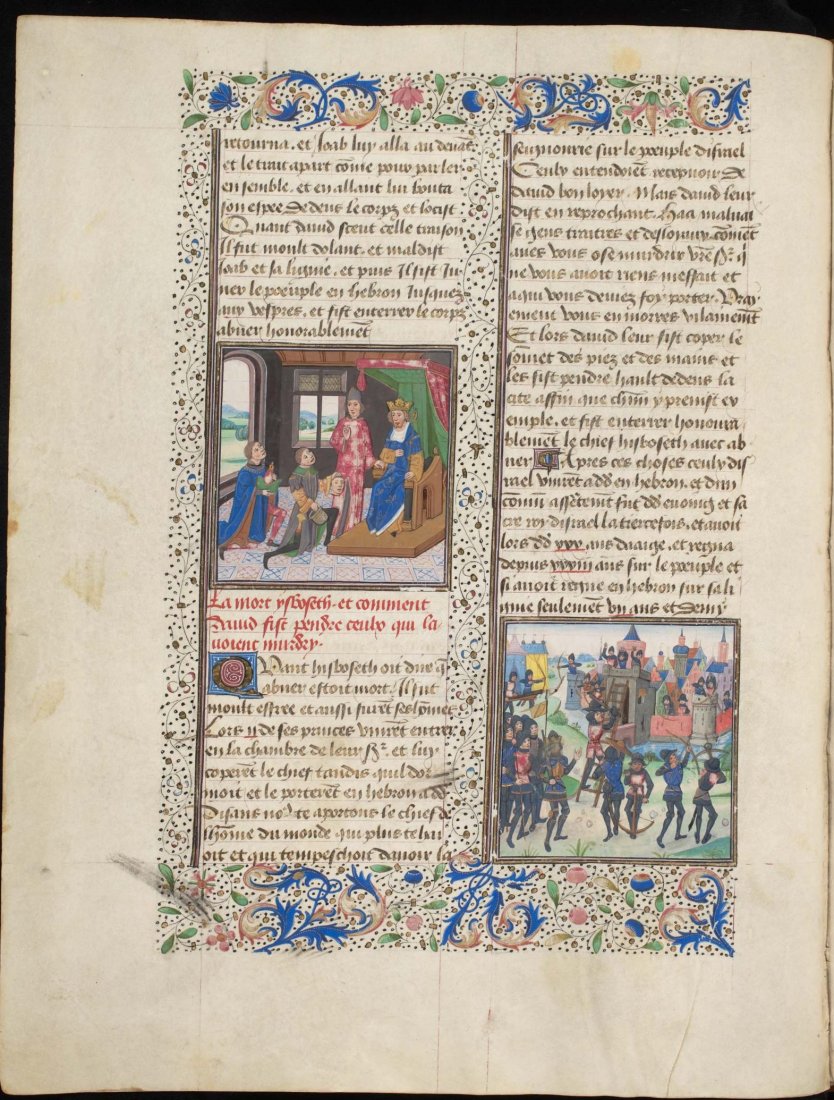 retourna. et Joab luy alla au devāt
et le trait apart cōme pour parler
ensemble. et en allant lui bouta
son espee dedens le corpz et locist.
Quant david sceut celle traison
Il fut moult dolant. et maldist
Joab et sa lignie. et puis Il fist Iu
ner le peuple en hebron Iusquez
aux vespres. et fist enterrer le corpz
abner honorablemēt
La mort ysboseth. et comment
david fist pendre ceulx qui la
voient murdry.
Quant hisboseth oit dire q̄
abner estoit mort. Il fut
moult effree et aussi furēt ses hōmes
Lors ij de ses princes vinrēt entrer
en la chambre de leur Sr. et luy
coperēt le chief tandis quil dor
moit et le porterēt en hebron a dd
Disans te aportons le chief de
lhōme du monde qui plus te hai
oit et qui tempeschoit davoir la
seignourie sur le peuple disrael
Ceulx entendoient recepvoir de
david bon loyer. Mais david leur
dist en reprochant. Haa malvai
se gens traitres et desloyaux. comēt
aves vous ose murdrir vrē Sr. q̄
ne vous avoit riens meffait et
a qui vous deviez foy porter. Vray
ement vous en morres vilainemēt
Et lors david leur fist coper le
sōmet des piez et des mains et
les fist pendre hault dedens la
cite affin que chūn y prenist ex
emple. et fist enterrer honoura
blemēt le chief hisboseth avec ab
ner Apres ces choses ceulx dis
rael vinrēt a dd en hebron. et dun
cōmū assētemt fut dd enoingt et sa
cre roy disrael la tiercefois. et avoit
lors dd xxx ans daaige. et regna
depuis xxxiii ans sur le peuple et
si avoit regne en hebron sur sa li
gnie seulemēt vij ans et demy